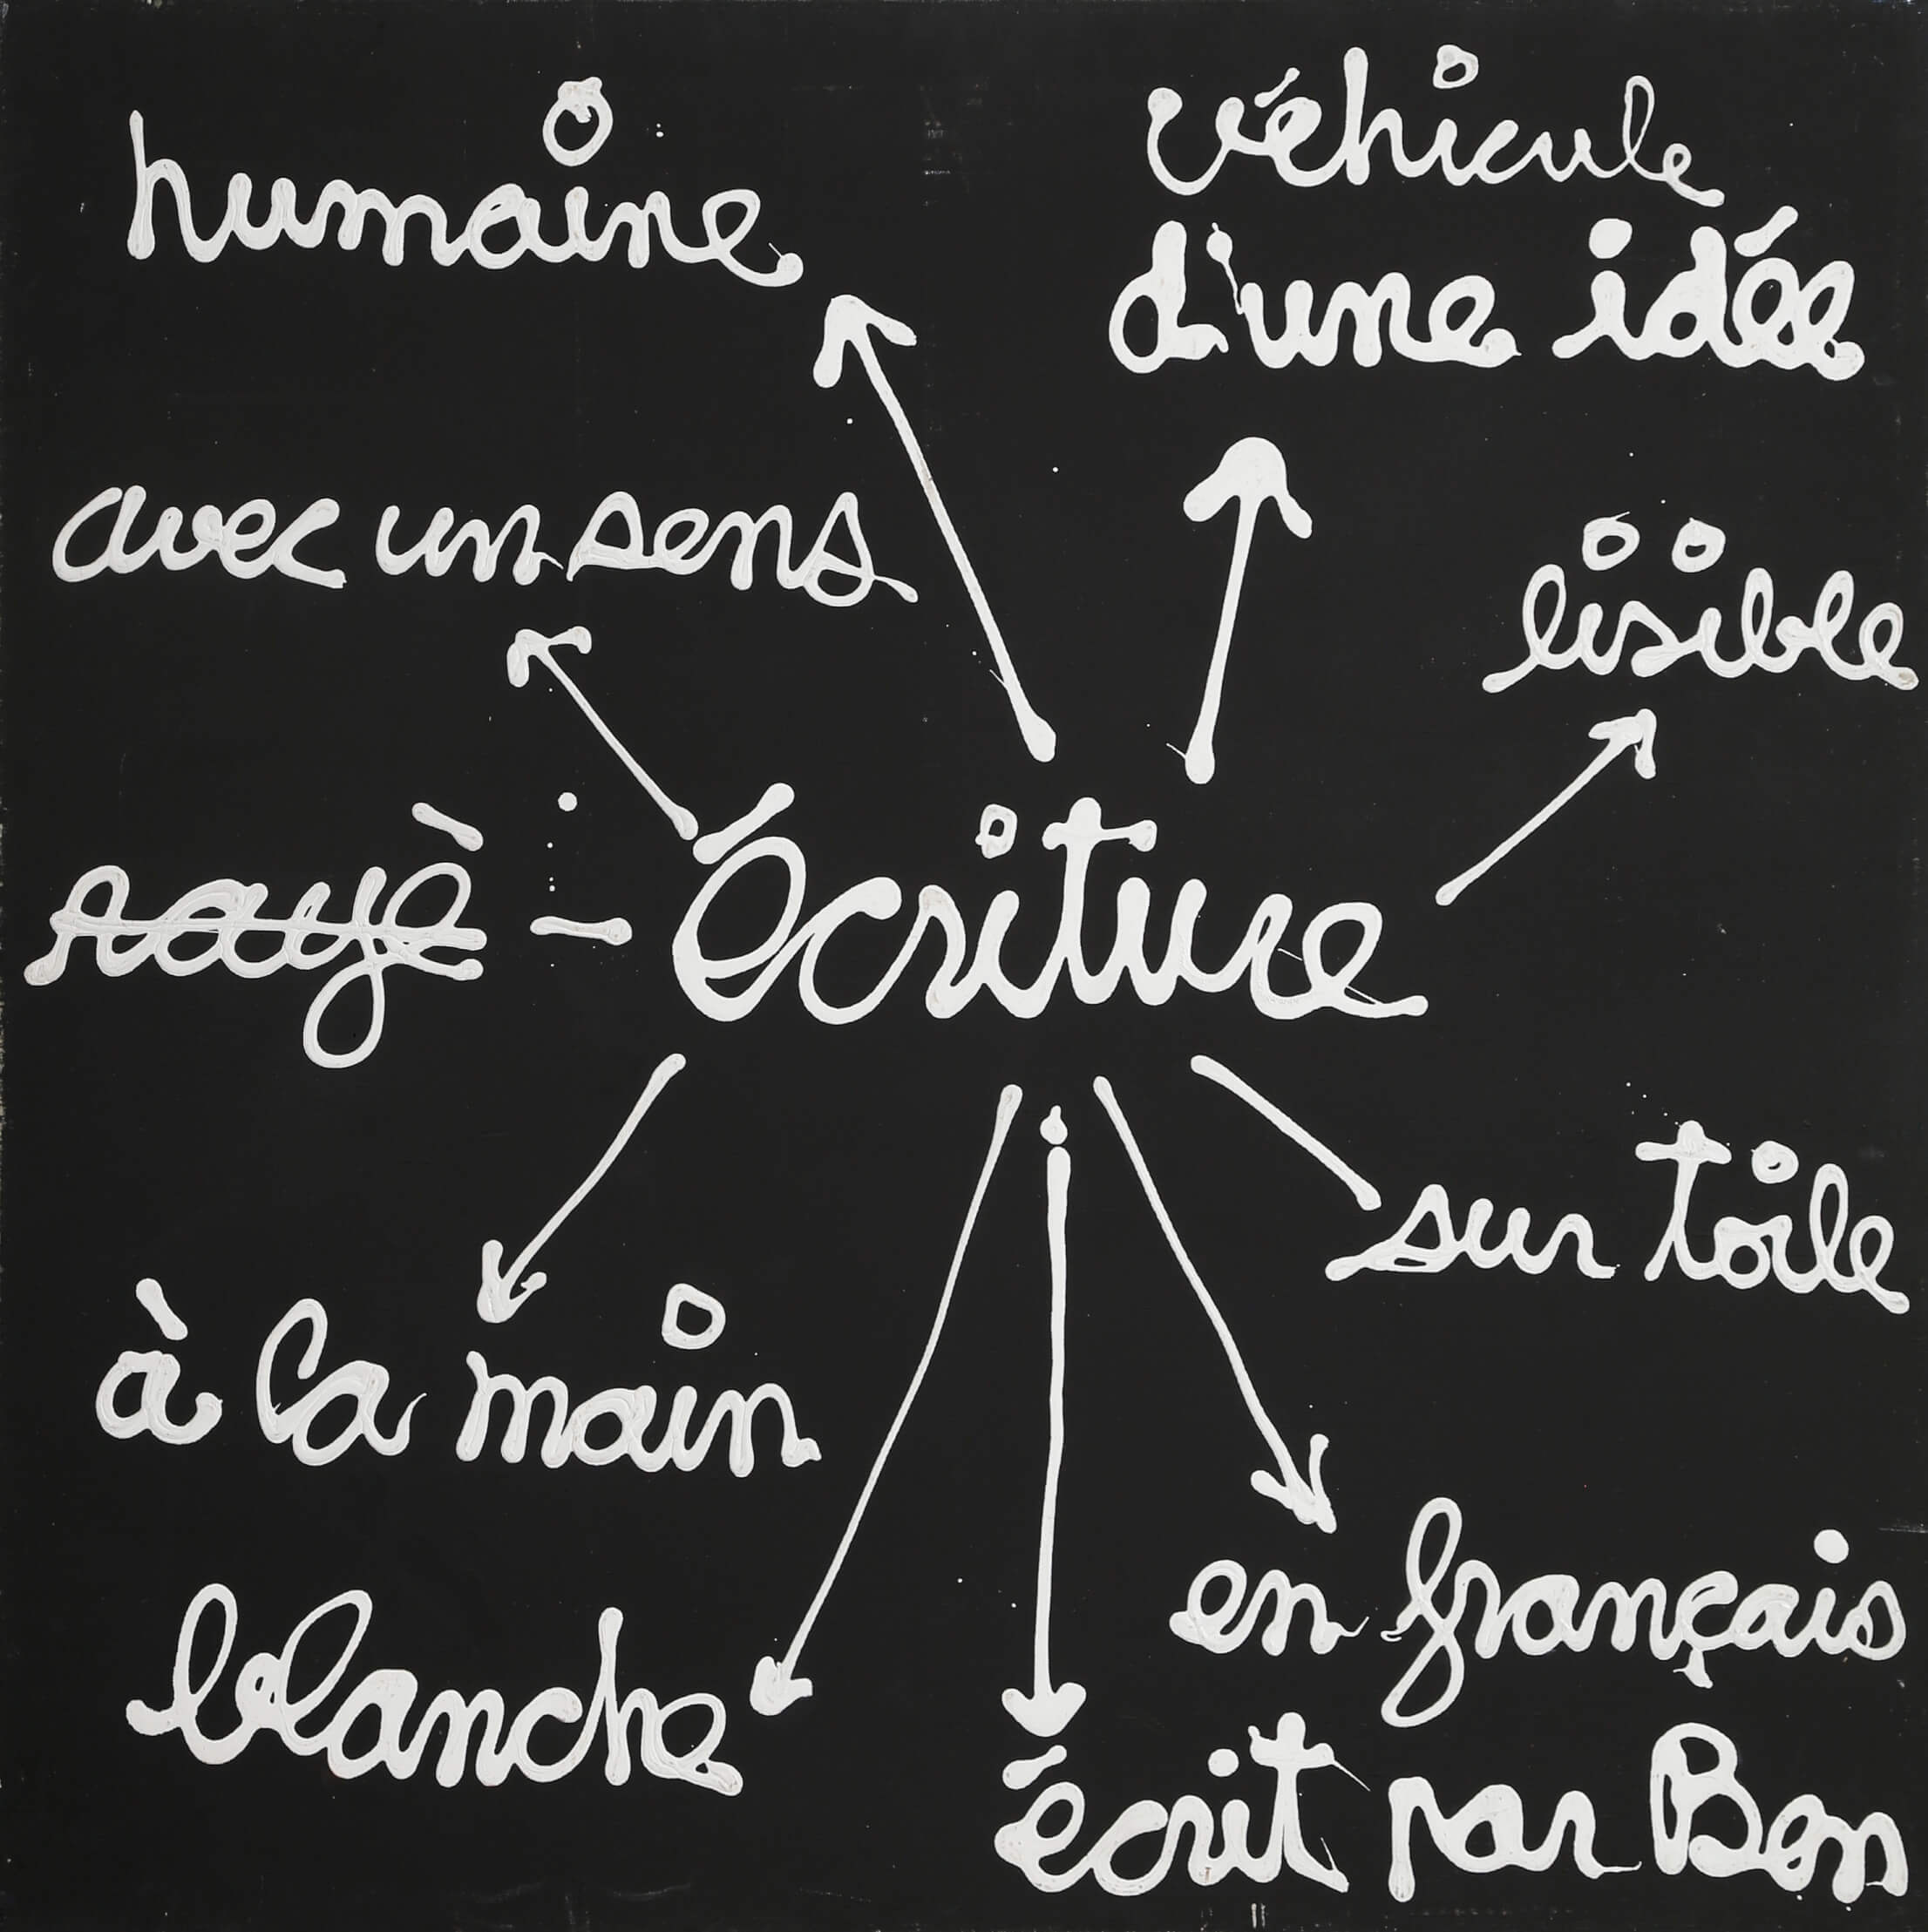 humaine
véhicule
d'une idée
avec un sens
lisible
rayè - écriture
sur toile
à la main
en français
blanche
écrit par Ben